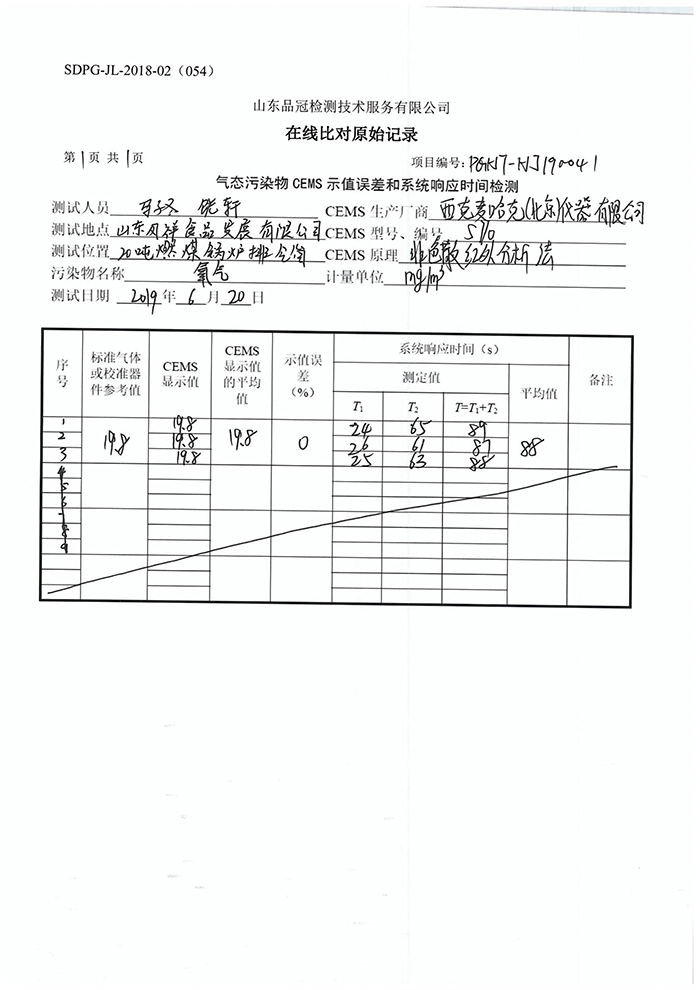 SDPG-JL-2018-02（054）
山东品冠检测技术服务有限公司
在线比对原始记录
第1页 共1页 项目编号：
气态污染物 CEMS 示值误差和系统响应时间检测
测试人员 CEMS 生产厂商 西克麦哈克(北京)仪器有限公司
测试地点 山东凤祥食品发展有限公司 CEMS 型号、编号 S710
测试位置 20吨燃煤锅炉排气筒 CEMS 原理 非色散红外分析法
污染物名称 氧气 计量单位 mg/m³
测试日期 2019年 6月 20日
序号 标准气体或校准器件参考值 CEMS显示值 CEMS显示值的平均值 示值误差（%） 系统响应时间（s） 备注
测定值 平均值
T₁ T₂ T=T₁+T₂
1 19.8 24 65 89
2 19.8 19.8 19.8 0 26 61 87 88
3 19.8 25 63 88
4
5
6
7
8
9